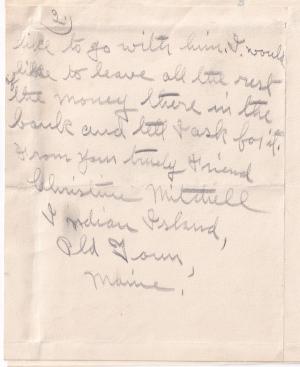 2
like to go with him. I would
like to leave all the rest
of the money there in the
bank and till I ask for it.
From your truly Friend
Christine Mitchell
Indian Island,
Old Town,
Maine,